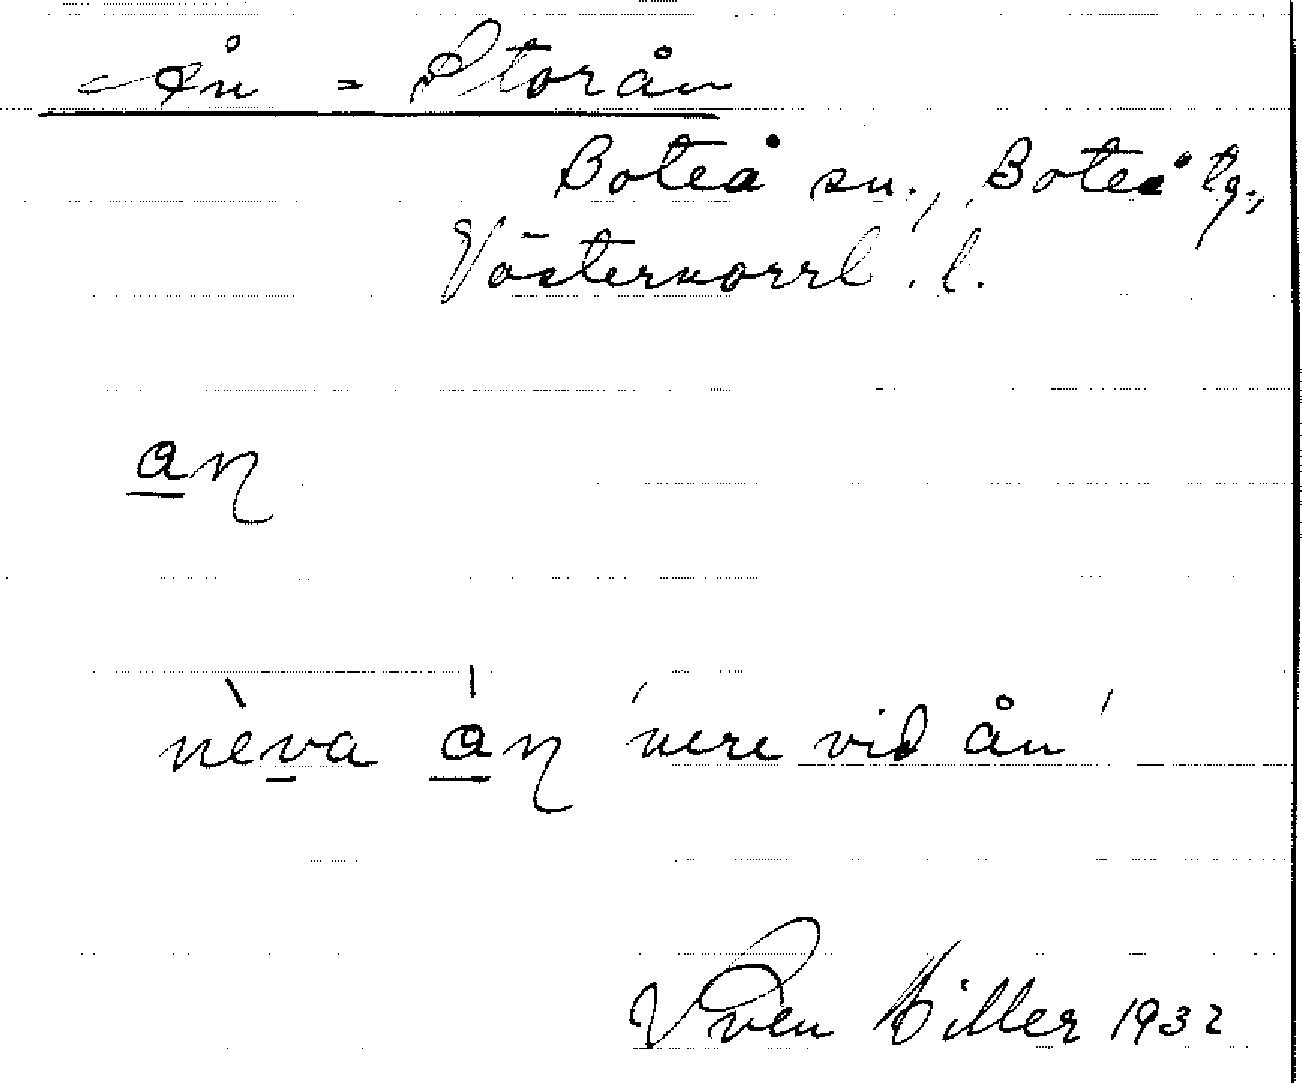 Ån = Storån
Boteå sn., Boteå tg.,
Västernorrl. l.
an
nèva án 'nere vid ån'
Sven Hiller 1932